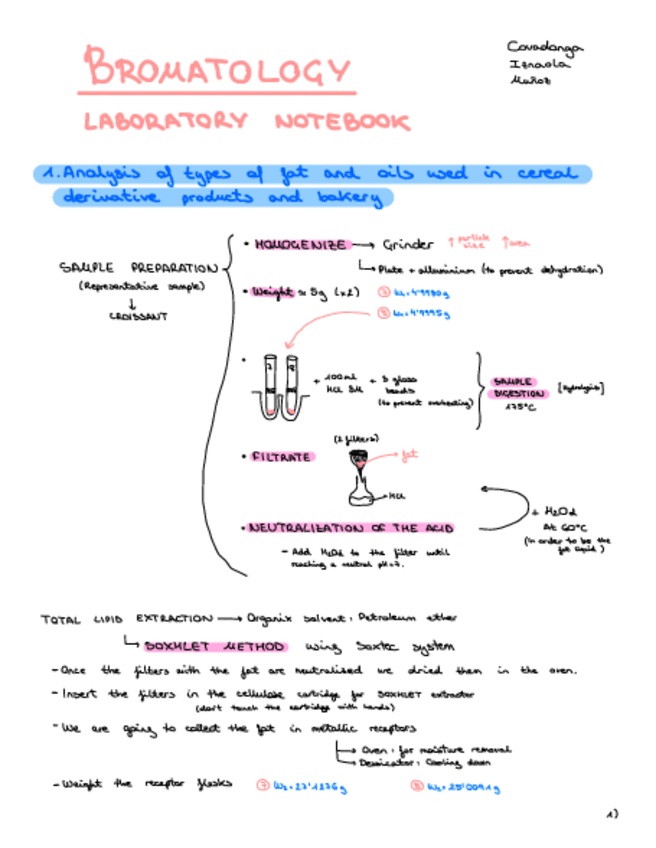 BROMATOLOGY
LABORATORY NOTEBOOK
Covadonga
Iznaola
Muñoz
1. Analysis of types of fat and oils used in cereal
derivative products and bakery
SAMPLE PREPARATION
(Representative sample)
↓
CROISSANT
• HOMOGENIZE → Grinder ↑ particle size ↑ area
↳ Plate + alluminium (to prevent dehydration)
• Weight ≈ 5g (x2) ⑦ W₁= 4'9980g
⑧ W₁= 4'9995g
• 7 8 + 100ml HCl 3M + 3 glass beads (to prevent overheating)
SAMPLE DIGESTION [Hydrolysis]
175°C
(2 filters)
• FILTRATE
fat
HCl
• NEUTRALIZATION OF THE ACID
+ H2Od
At 60°C
(in order to be the
fat liquid)
- Add H2Od to the filter until
reaching a neutral pH=7.
TOTAL LIPID EXTRACTION → Organix solvent: Petroleum ether
↳ SOXHLET METHOD using Soxtec system
- Once the filters with the fat are neutralised we dried them in the oven.
- Insert the filters in the cellulose cartridge for SOXHLET extractor
(don't touch the cartridge with hands)
- We are going to collect the fat in metallic receptors
→ Oven: for moisture removal
→ Dessicator: Cooling down
- Weight the receptor flasks ⑦ W₂= 27'1276g ⑧ W₂= 25'0091g
1)